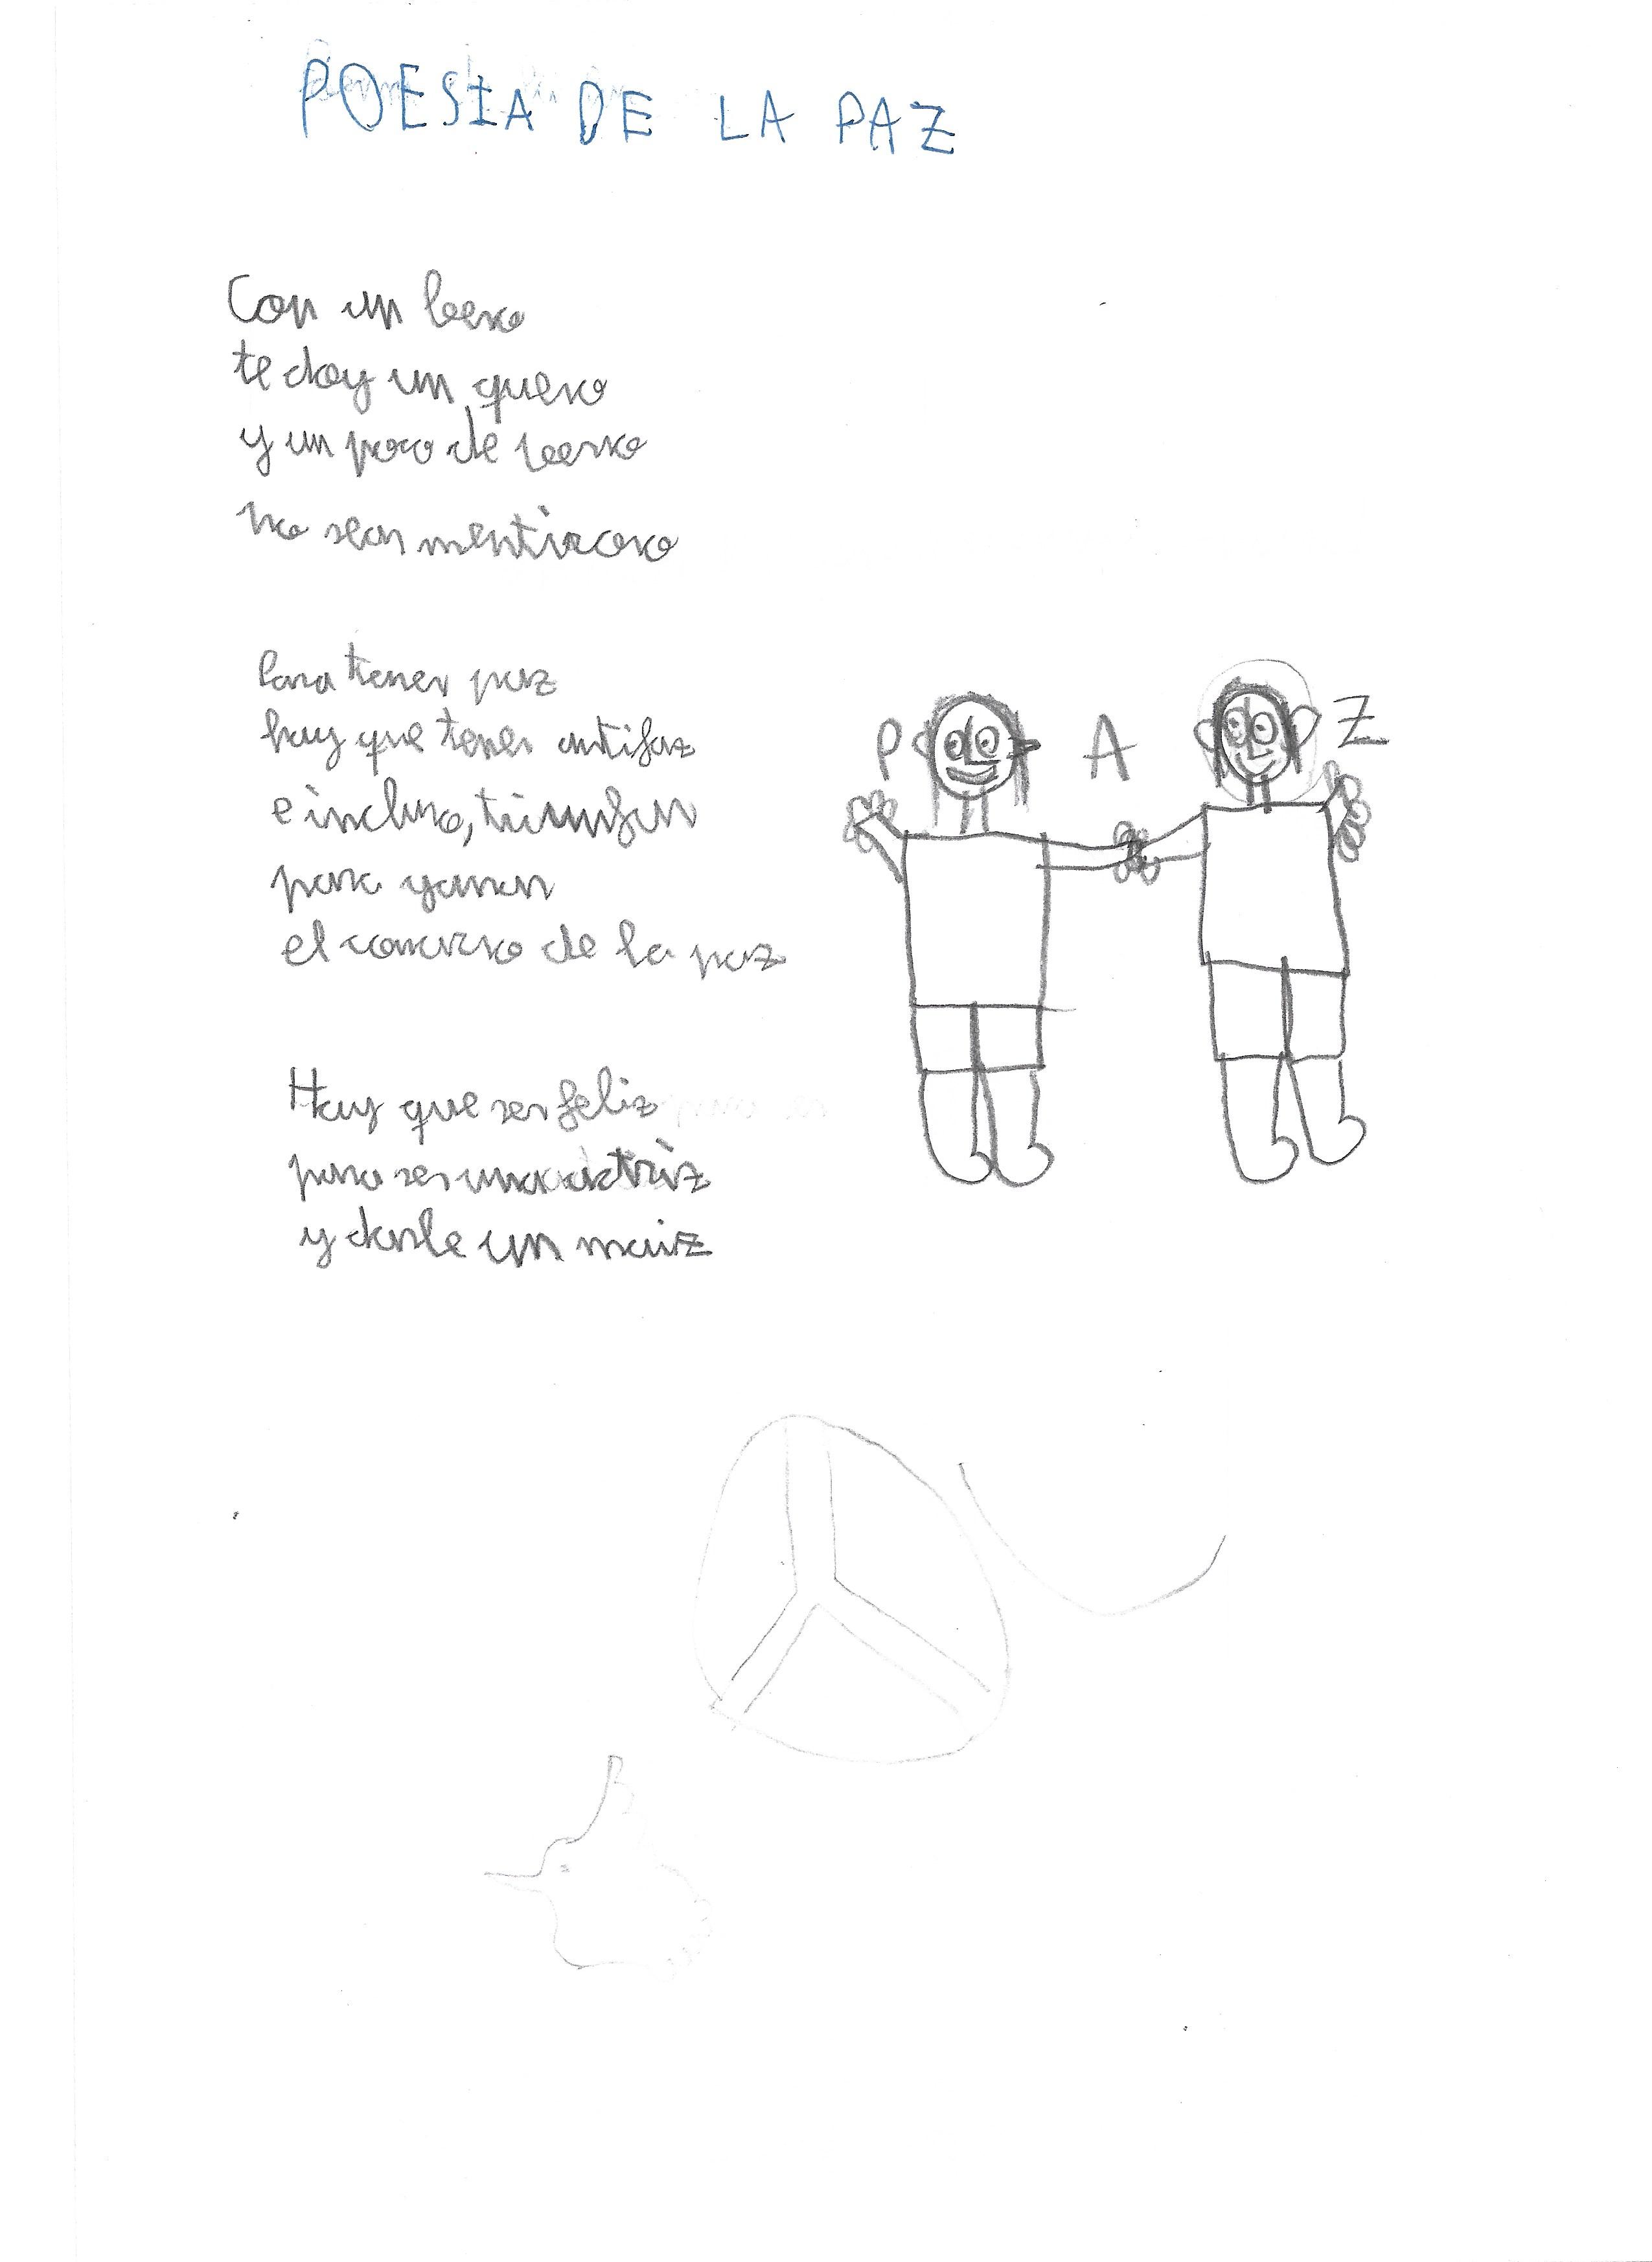 POESIA DE LA PAZ
Con un beso
te doy un queso
y un poco de
no seas mentiroso
Para tener paz
hay que tener antifaz
e incluso, triunfar
para ganar
el concurso de la paz
P A Z
Hay que ser feliz
para ser una actriz
y darle un maiz